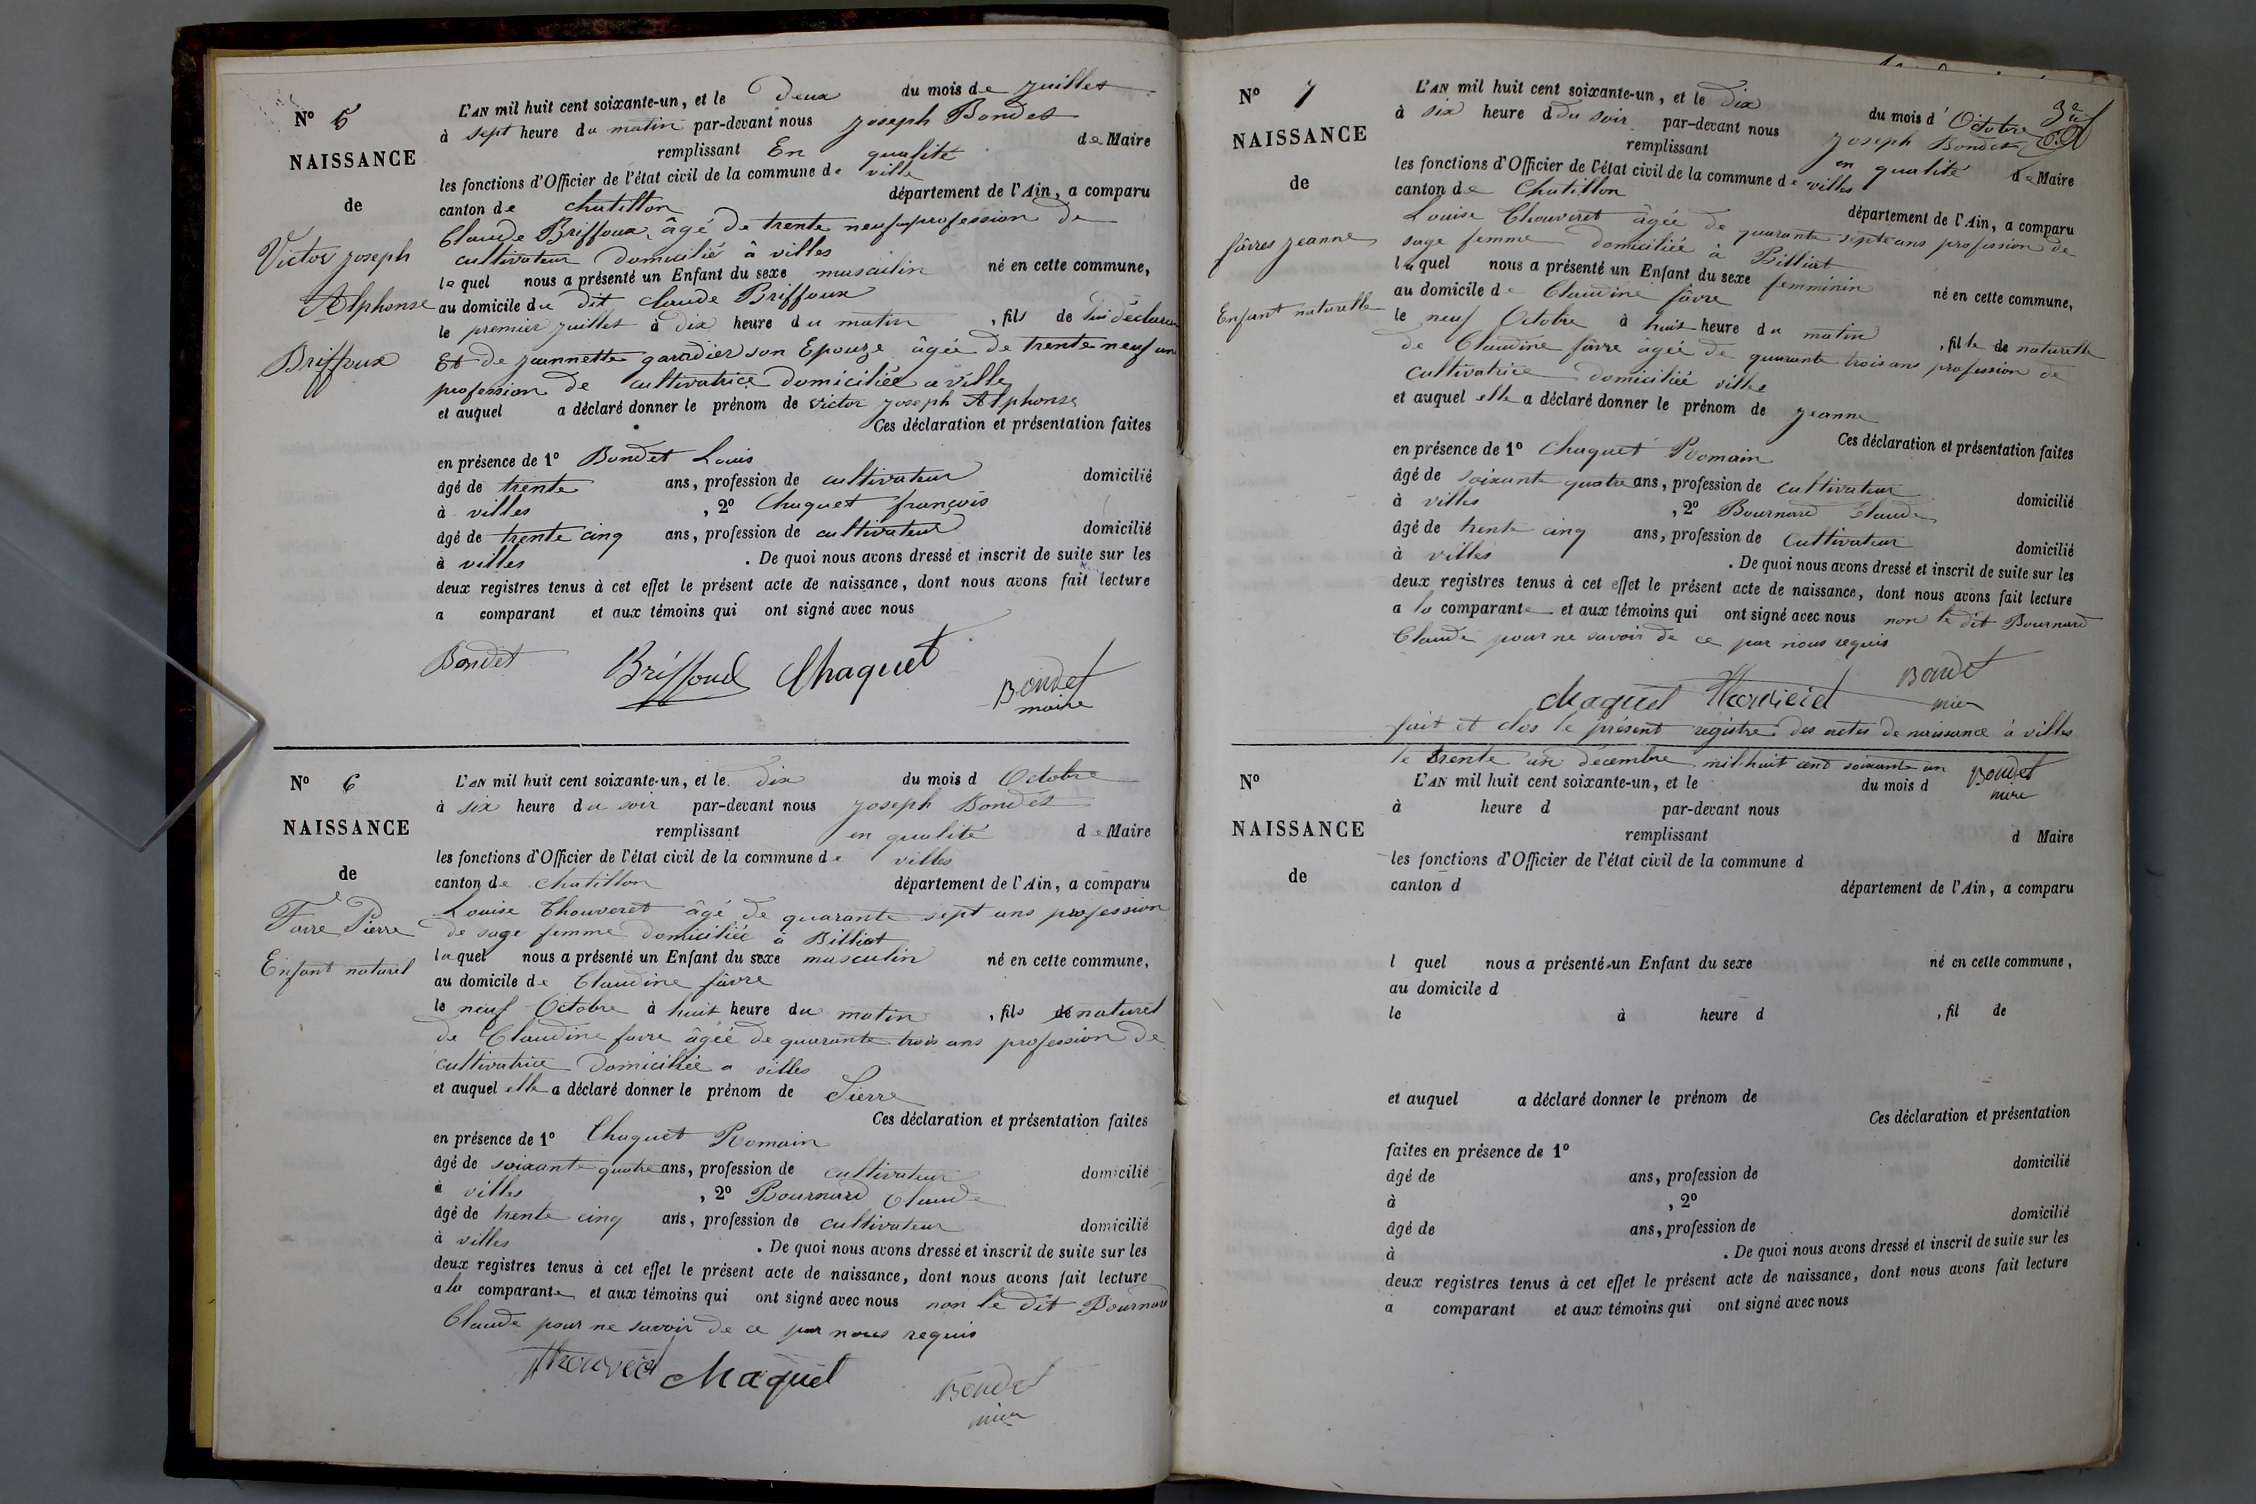 N° 5
NAISSANCE
de
Victor Joseph
Alphonse
Briffoux
L'AN mil huit cent soixante-un, et le Deux du mois de juillet
à sept heure du matin par-devant nous Joseph Bondet
remplissant En qualité de Maire
les fonctions d'Officier de l'état civil de la commune de ville
canton de chatillon département de l'Ain, a comparu
Claude Briffoux, âgé de trente neuf profession de
cultivateur Domicilié à villes
lequel nous a présenté un Enfant du sexe masculin né en cette commune,
au domicile du dit Claude Briffoux
le premier juillet à Dix heure du matin, fils de lui déclarant
Et de jeannette garadier son Epouze âgée de trente neuf an
profession de cultivatrice Domiciliée a ville
et auquel a déclaré donner le prénom de victor joseph Alphonse
Ces déclaration et présentation faites
en présence de 1° Bondet Louis
âgé de trente ans, profession de cultivateur domicilié
à villes, 2° Chaquet françois
âgé de trente cinq ans, profession de cultivateur domicilié
à villes. De quoi nous avons dressé et inscrit de suite sur les
deux registres tenus à cet effet le présent acte de naissance, dont nous avons fait lecture
a comparant et aux témoins qui ont signé avec nous
Bondet Briffoud Chaquet Bondet
maire
N° 6
NAISSANCE
de
Favre Pierre
Enfant naturel
L'AN mil huit cent soixante-un, et le Dix du mois d Octobre
à six heure du soir par-devant nous Joseph Bondet
remplissant en qualité de Maire
les fonctions d'Officier de l'état civil de la commune de villes
canton de chatillon département de l'Ain, a comparu
Louise Thouveret âgé de quarante sept ans profession
de sage femme domiciliée à Billiat
laquel nous a présenté un Enfant du sexe masculin né en cette commune,
au domicile de Claudine favre
le neuf Octobre à huit heure du matin, fils de naturel
de Claudine favre âgée de quarante trois ans profession de
cultivatrice Domiciliée a villes
et auquel elle a déclaré donner le prénom de Pierre
Ces déclaration et présentation faites
en présence de 1° Chaquet Romain
âgé de soixante quatre ans, profession de cultivateur domicilié
à villes, 2° Bournard Claude
âgé de trente cinq ans, profession de cultivateur domicilié
à villes. De quoi nous avons dressé et inscrit de suite sur les
deux registres tenus à cet effet le présent acte de naissance, dont nous avons fait lecture
a la comparante et aux témoins qui ont signé avec nous non le dit Bournard
Claude pour ne savoir de ce par nous requis
Chaquet Bondet
N° 7
NAISSANCE
de
fâvres jeanne
Enfant naturelle
L'AN mil huit cent soixante-un, et le Dix du mois d'Octobre
à six heure d du soir par-devant nous Joseph Bondet
remplissant en qualité de Maire
les fonctions d'Officier de l'état civil de la commune de villes
canton de Chatillon département de l'Ain, a comparu
Louise Thouveret âgée de quarante sept ans profession de
sage femme domiciliée à Billiat
laquel nous a présenté un Enfant du sexe femminin né en cette commune,
au domicile de Claudine fâvre
le neuf Octobre à huit heure du matin, fille de naturelle
de Claudine fâvre âgée de quarante trois ans profession de
cultivatrice domiciliée villes
et auquel elle a déclaré donner le prénom de jeanne
Ces déclaration et présentation faites
en présence de 1° Chaquet Romain
âgé de soixante quatre ans, profession de cultivateur domicilié
à villes, 2° Bournard Claude
âgé de trente cinq ans, profession de cultivateur domicilié
à villes. De quoi nous avons dressé et inscrit de suite sur les
deux registres tenus à cet effet le présent acte de naissance, dont nous avons fait lecture
a la comparante et aux témoins qui ont signé avec nous non le dit Bournard
Claude pour ne savoir de ce par nous requis
Chaquet Bondet
fait et clos le présent registre des actes de naissance à villes
le trente un décembre mil huit cent soixante un Bondet
N°
NAISSANCE
de
L'AN mil huit cent soixante-un, et le du mois d
à heure d par-devant nous
remplissant d Maire
les fonctions d'Officier de l'état civil de la commune d
canton d département de l'Ain, a comparu
l quel nous a présenté un Enfant du sexe né en cette commune,
au domicile d
le à heure d, fil de
et auquel a déclaré donner le prénom de
Ces déclaration et présentation
faites en présence de 1°
domicilié
âgé de ans, profession de
à, 2°
domicilié
âgé de ans, profession de
à. De quoi nous avons dressé et inscrit de suite sur les
deux registres tenus à cet effet le présent acte de naissance, dont nous avons fait lecture
a comparant et aux témoins qui ont signé avec nous